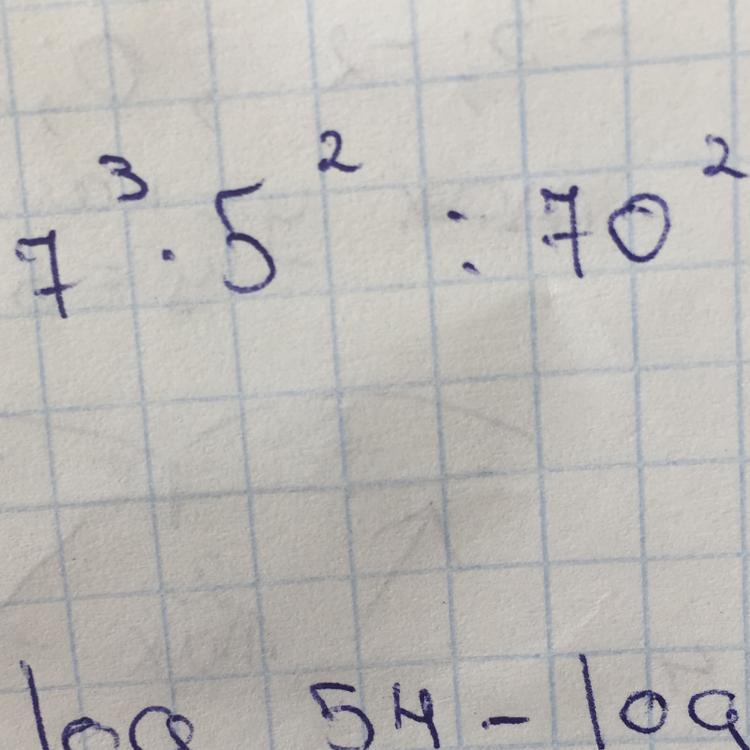 7³ · 5² : 70²
log 54 - log